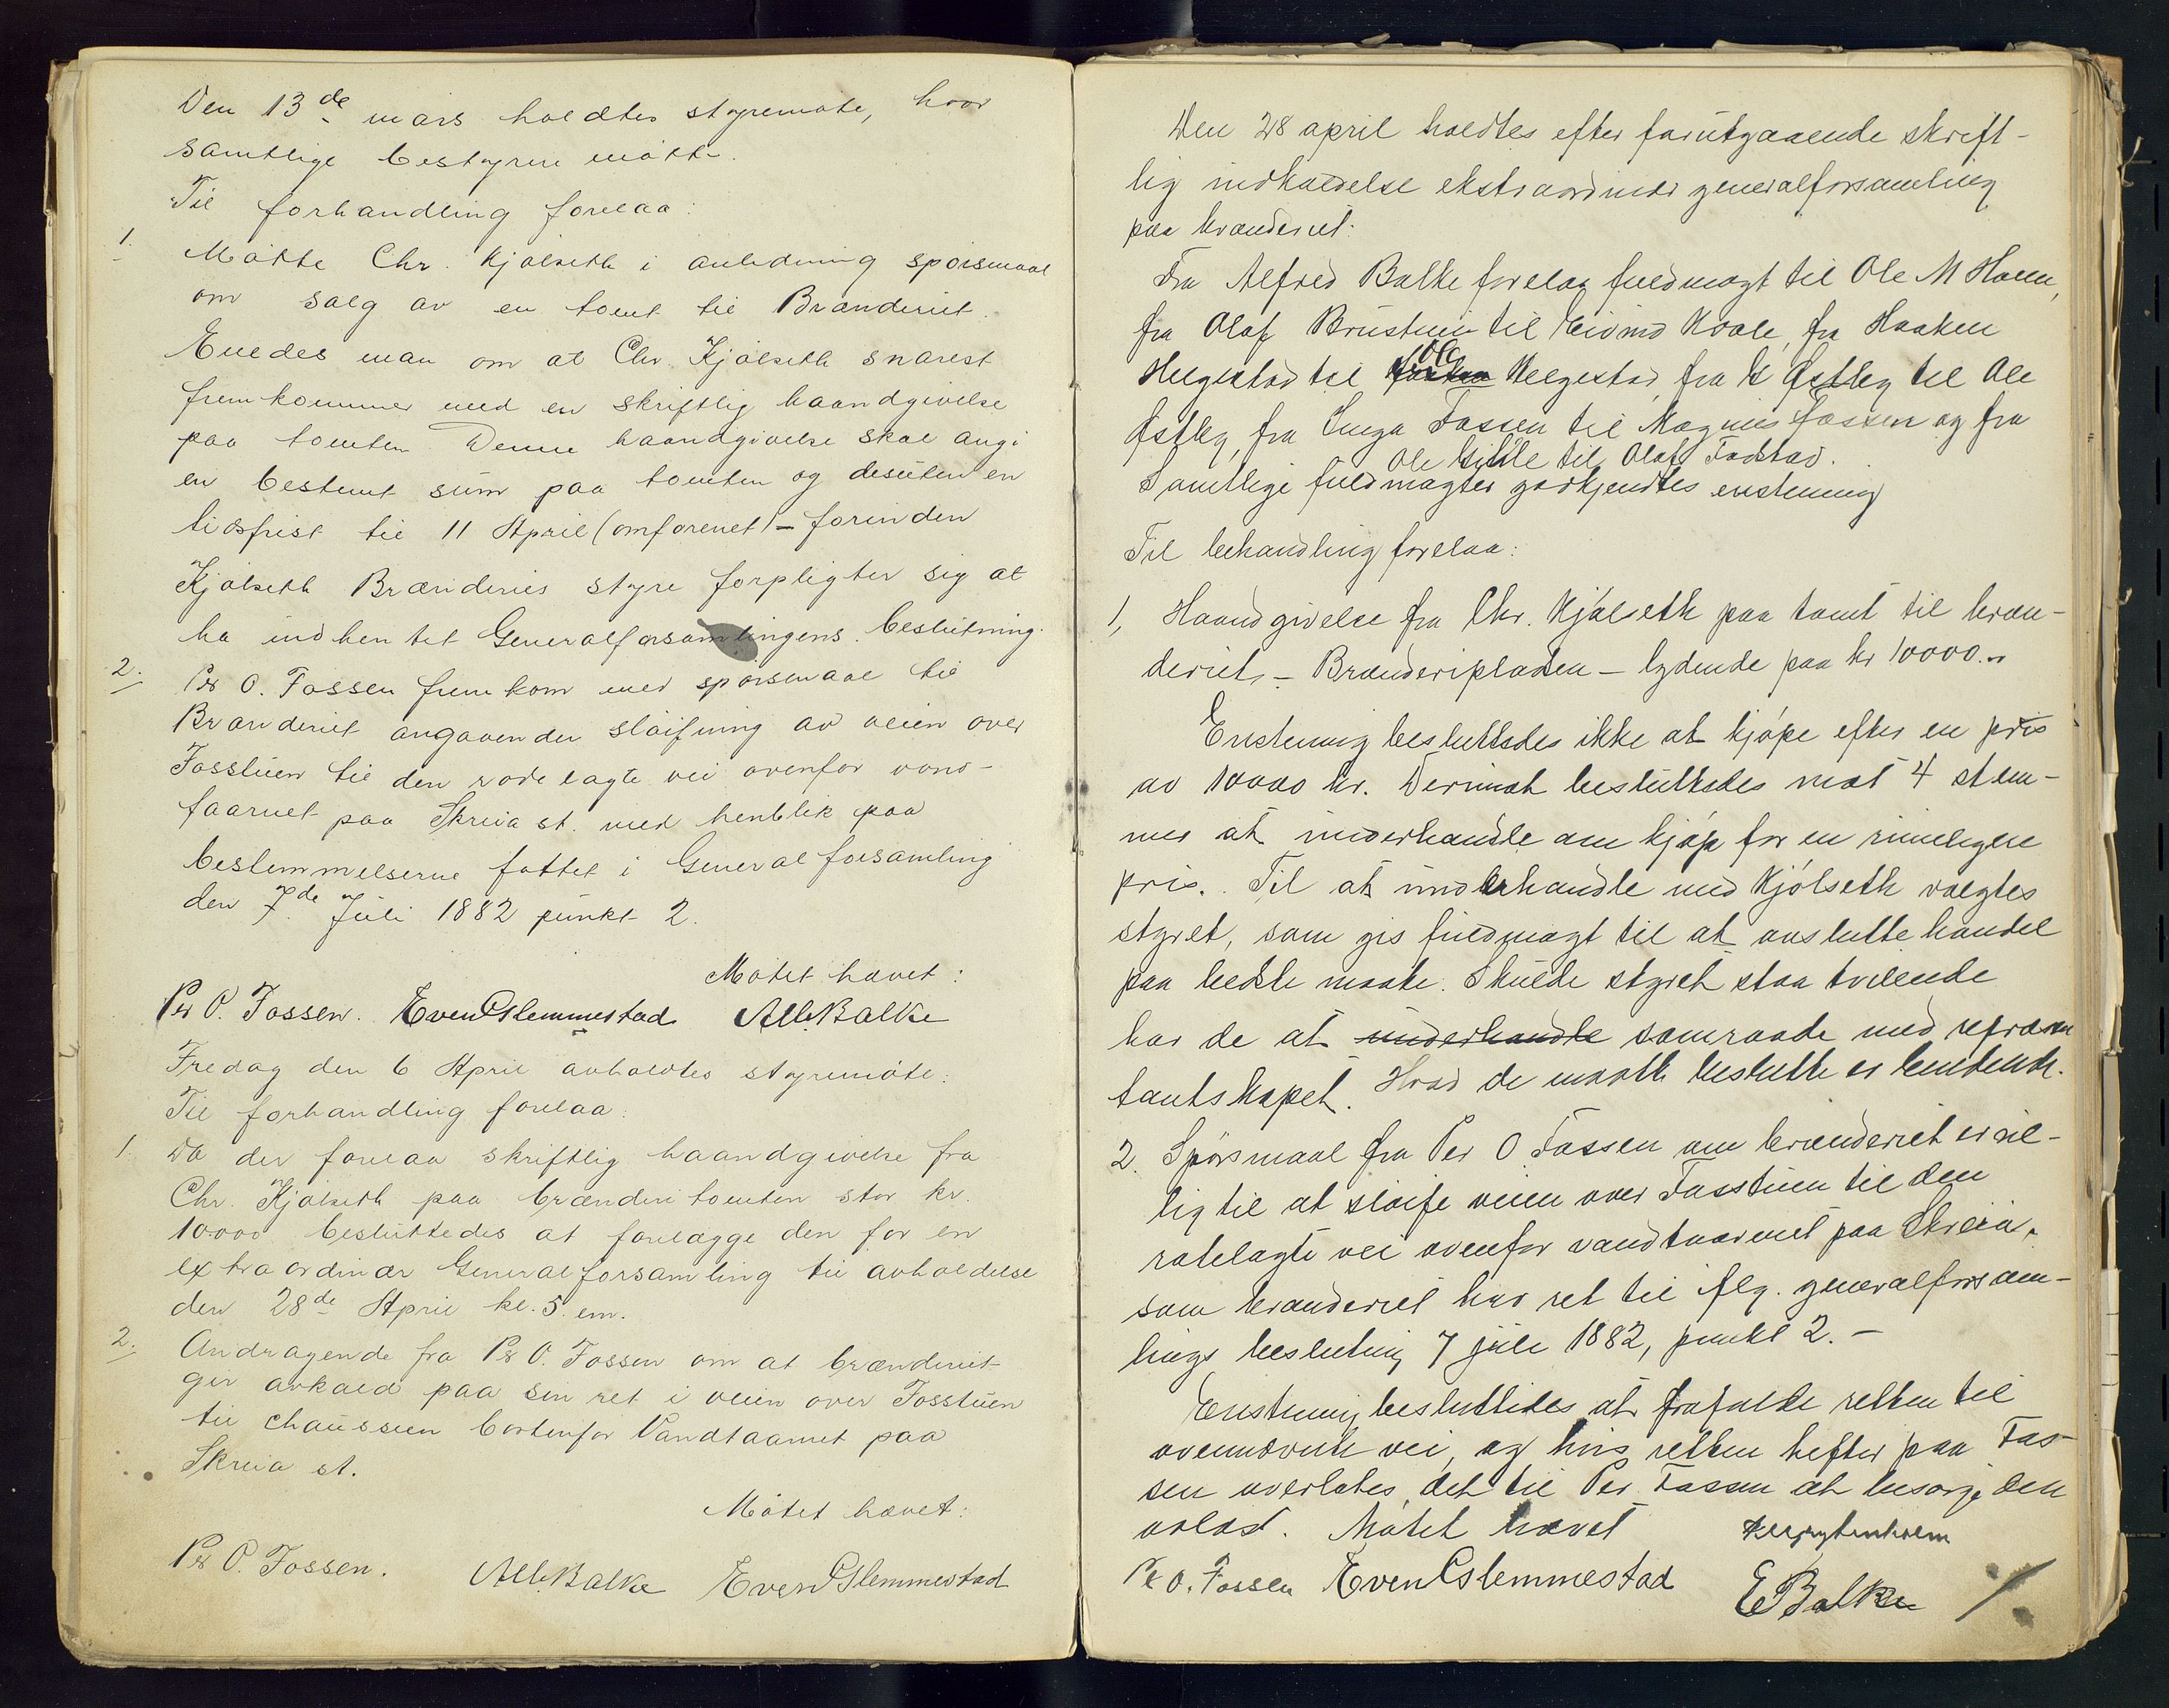 Den 13de mars holdtes styremøte, hvor
samtlige bestyrere møtte.
Til forhandling forelaa:
1. Møtte Chr. Kjølseth i anledning spørsmaal
om salg av en tomt til Brænderiet.
Enedes man om at Chr. Kjølseth snarest
fremkommer med en skriftlig haandgivelse
paa tomten. Denne haandgivelse skal angi
en bestemt sum paa tomten og desuten en
tidsfrist til 11 April (omforenet) – forinden
Kjølseth Brænderies styre forpligter sig at
ha indhentet Generalforsamlingens beslutning.
2. Pr O. Fossen fremkom med spørsmaal til
Brænderiet angaaende sløifning av veien over
Fosstuen til den rodelagte vei ovenfor vand-
taarnet paa Skreia st. med henblik paa
bestemmelserne fattet i Generalforsamling
den 7de Juli 1882 punkt 2.
Møtet hævet:
Pr O. Fossen. Even Glemmestad Alb. Balke
Fredag den 6 April avholdtes styremøte:
Til forhandling forelaa:
1. Da der forelaa skriftlig haandgivelse fra
Chr. Kjølseth paa brænderitomten stor kr.
10000 besluttedes at forelægge den for en
extraordinær Generalforsamling til avholdelse
den 28de April kl. 5 em.
2. Andragende fra Pr O. Fossen om at brænderiet
gir avkald paa sin ret i veien over Fosstuen
til chausseen bortenfor Vandtaarnet paa
Skreia st.
Møtet hævet:
Pr O. Fossen. Alb. Balke Even Glemmestad
Den 28 april holdtes efter forutgaaende skrift-
lig indkaldelse ekstraordinær generalforsamling
paa brænderiet:
Fra Alfred Balke forelaa fuldmagt til Ole M Holm,
fra Olaf til Eivind Kvale, fra Haaken
Helgestad til Ole Helgestad, fra K Østby til Ole
Østby, fra Inga Fossen til Magnus Fossen og fra
Ole Gihle til Olaf Fodstad.
Samtlige fuldmagter godkjendtes enstemmig
Til behandling forelaa:
1, Haandgivelse fra Chr. Kjølseth paa tomt til bræn-
deriet, – Brænderipladsen – lydende paa kr 10000.–
Enstemmig besluttedes ikke at kjøpe efter en pris
av 10000 kr. Derimot besluttedes mot 4 stem-
mer at underhandle om kjøp for en rimeligere
pris. Til at underhandle med Kjølseth valgtes
styret, som gis fuldmagt til at avslutte handel
paa bedste maate. Skulde styret staa tvilende
har de at underhandle samraade med repræsen
tantskapet. Hvad de maatte beslutte er bindende.
2. Spørsmaal fra Per O Fossen om brænderiet er vil-
lig til at sløife veien over Fosstuen til den
rodelagte vei ovenfor vandtaarnet paa Skreia,
som brænderiet har ret til iflg. generalforsam-
lings beslutning 7 juli 1882, punkt 2. –
Enstemmig besluttedes at frafalde retten til
ovennævnte vei, og hvis retten hefter paa Fos-
sen overlates det til Per Fossen at besørge den
avløst. Møtet hævet
Pr O. Fossen Even Glemmestad E Balke